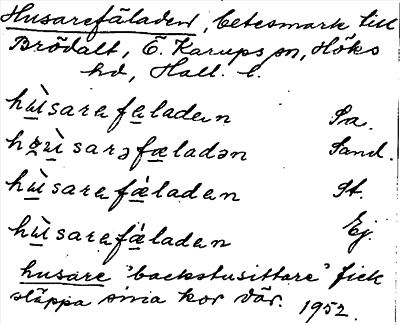 Husarefäladen, betesmark till
Brödalt, Ö. Karups sn, Höks
hd, Hall. l.
hùsarafaladan Sa.
hoùsarəfæladən Sand.
hùsarafǽladan St.
hùsarafáladan Ej.
husare "backstusittare" fick
släppa sina kor där. 1952.